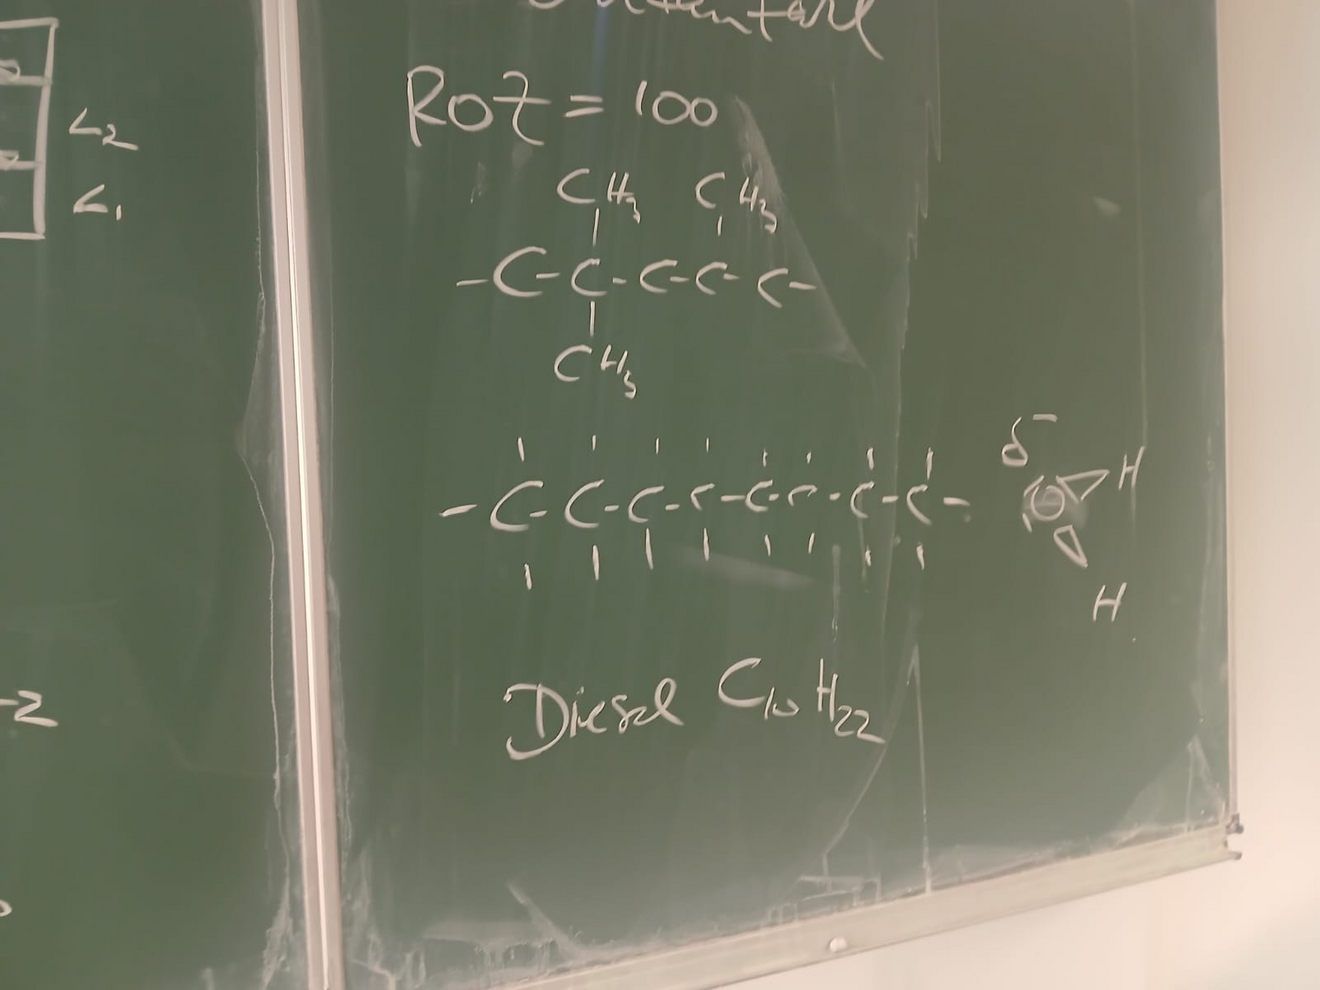 L2
L1
-2
ROZ = 100
CH3 CH3
-C-C-C-C-C-
CH3
-C-C-C-C-C-C-C-C-
δ-
O H
H
Diesel C10H22